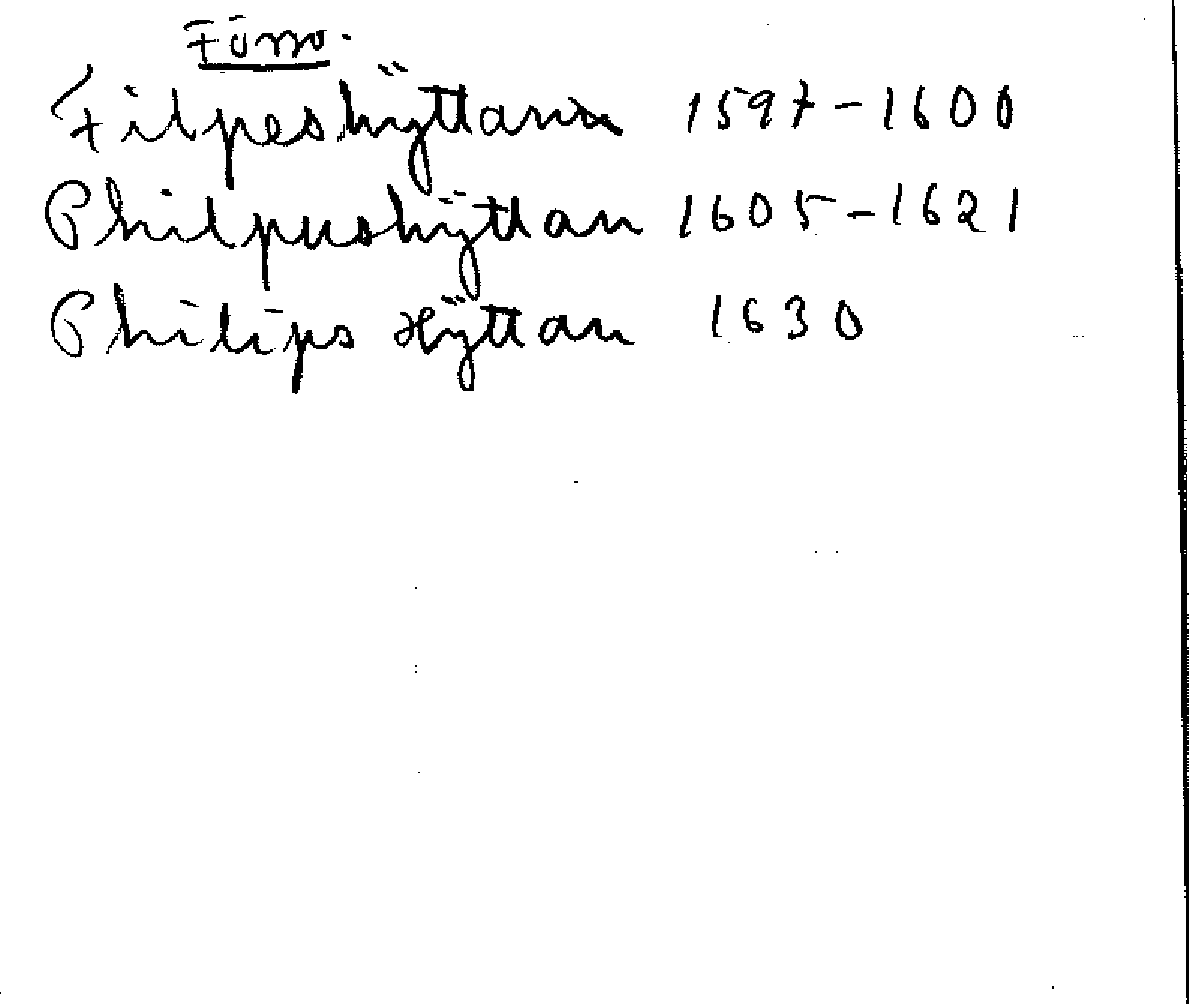 Filpeshÿttann 1597-1600
Philpushÿttan 1605-1621
Philips Hÿttan 1630